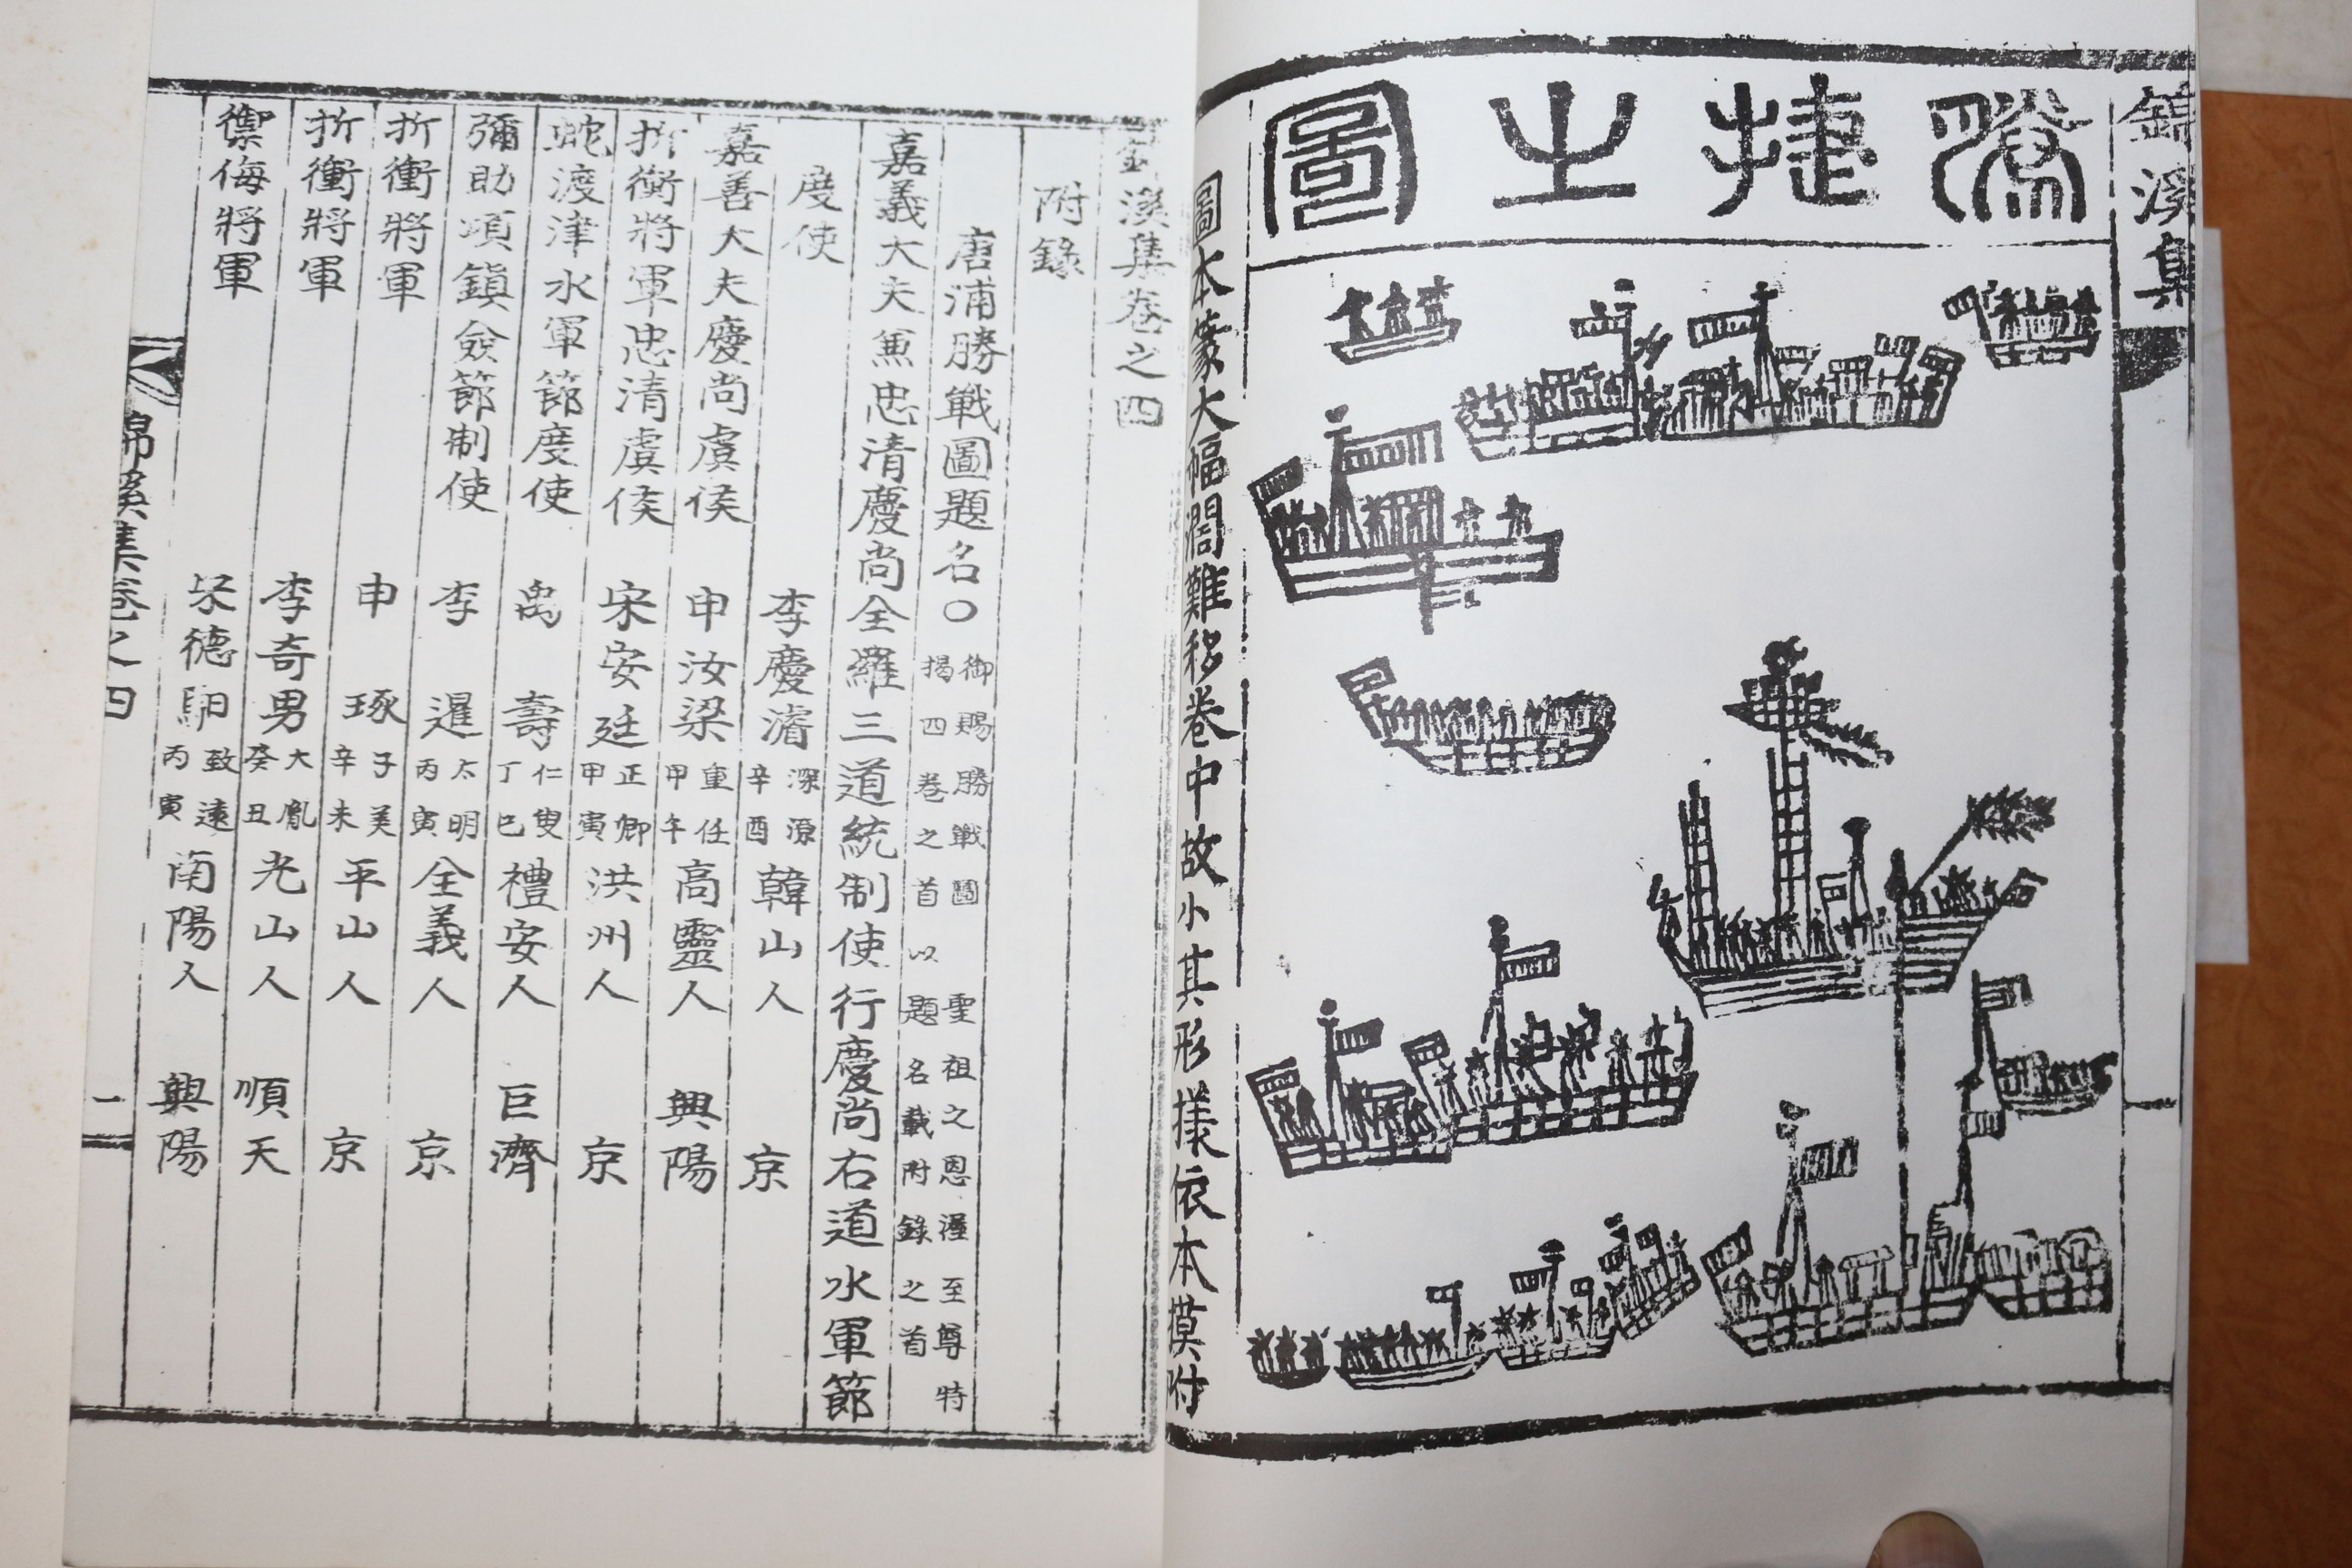 錦溪集
捷之圖
圖本篆大幅濶難移卷中故小其形樣依本摸付
錦溪集卷之四
附錄
唐浦勝戰圖題名〇
御賜勝戰圖 聖祖之恩渥至尊特
揭四卷之首以題名載附錄之首
嘉義大夫兼忠清慶尚全羅三道統制使行慶尚右道水軍節
度使 李慶濬 深源 辛酉 韓山人 京
嘉善大夫慶尚虞侯 申汝梁 重任 甲午 高靈人 興陽
折衝將軍忠清虞侯 宋安廷 正卿 甲寅 洪州人 京
蛇渡津水軍節度使 禹壽 仁叟 丁巳 禮安人 巨濟
彌助項鎮僉節制使 李暹 太明 丙寅 全義人 京
折衝將軍 申琢 子美 辛未 平山人 京
折衝將軍 李奇男 大胤 癸丑 光山人 順天
禦侮將軍 宋德馹 致遠 丙寅 南陽人 興陽
錦溪集卷之四 一